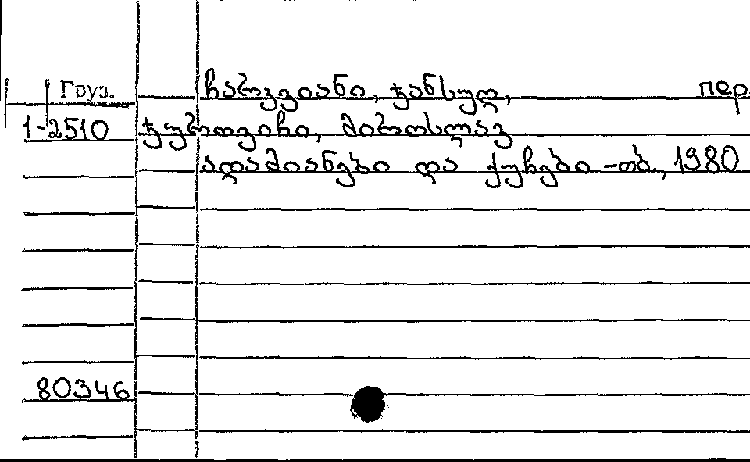 Груз. ჩარკვიანი, ჯანსუღ, пер.
1-2510 ჯურთვიჩი, მიროსლავ
ადამიანები და ქუჩები -თბ., 1980
80346